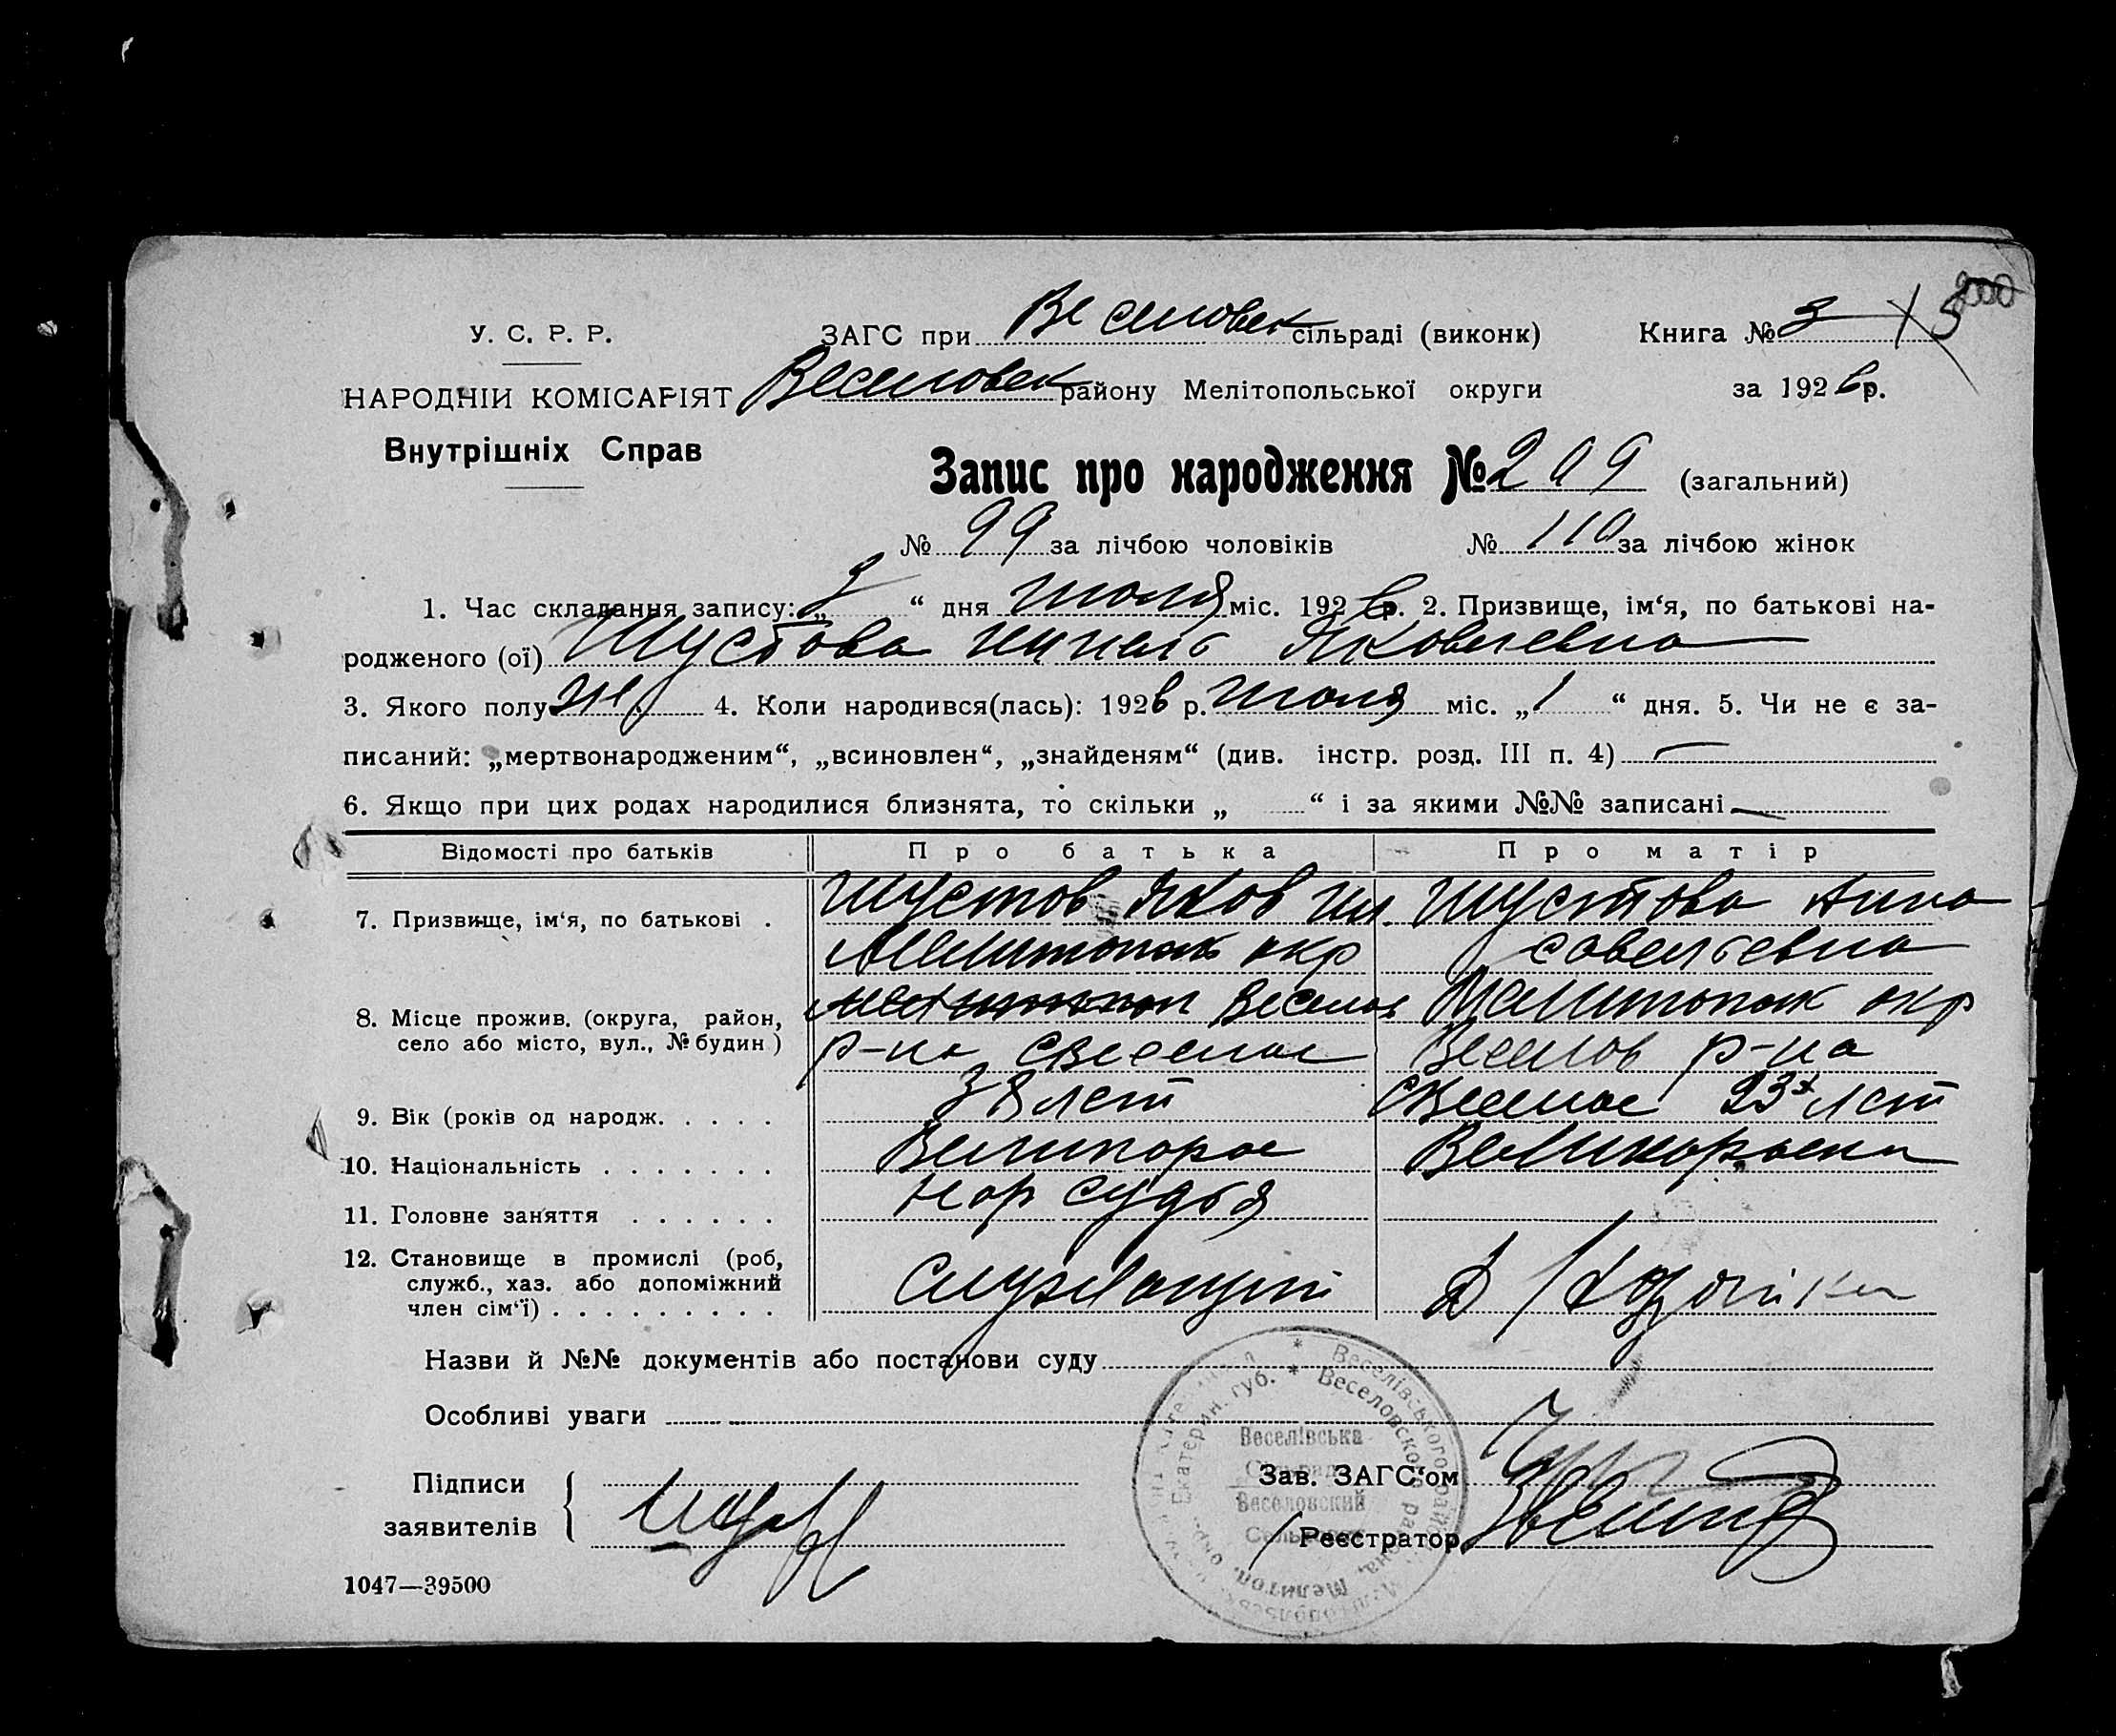 У. С. Р. Р.
ЗАГС при Веселовск сільраді (виконк)
Книга № 3
НАРОДНІЙ КОМІСАРІЯТ
Веселовск району Мелітопольської округи
за 1926 р.
Внутрішніх Справ
Запис про народження № 209 (загальний)
№ 99 за лічбою чоловіків № 110 за лічбою жінок
1. Час складання запису: „2“ дня июля міс. 1926 р. 2. Призвище, ім‘я, по батькові на-
родженого (ої) Шустова Нинель Яковлевна
3. Якого полу ж 4. Коли народився(лась): 1926 р. июля міс. „1“ дня. 5. Чи не є за-
писаний: „мертвонародженим“, „всиновлен“, „знайденям“ (див. інстр. розд. III п. 4)
6. Якщо при цих родах народилися близнята, то скільки „ “ і за якими №№ записані
Відомості про батьків Про батька Про матір
7. Призвище, ім‘я, по батькові . Шустов Яков Ил. Шустова Анна
Мелитопольск окр Савельевна
8. Місце прожив. (округа, район, село або місто, вул., № будин) Веселов Мелитопольск окр
р-на с Веселое Веселов р-на
9. Вік (років од народж. . . . . 38 лет с Веселое 23х лет
10. Національність . . . . . . . Великорос Великороска
11. Головне заняття . . . . . . нар судья
12. Становище в промислі (роб,
служб., хаз. або допоміжний
член сім‘ї) . . . . . . . . . Служащий Д/хазяйка
Назви й №№ документів або постанови суду
Особливі уваги
Підписи
заявителів
Зав. ЗАГС‘ом
Реєстратор
Веселівська
Веселовский
1047—39500